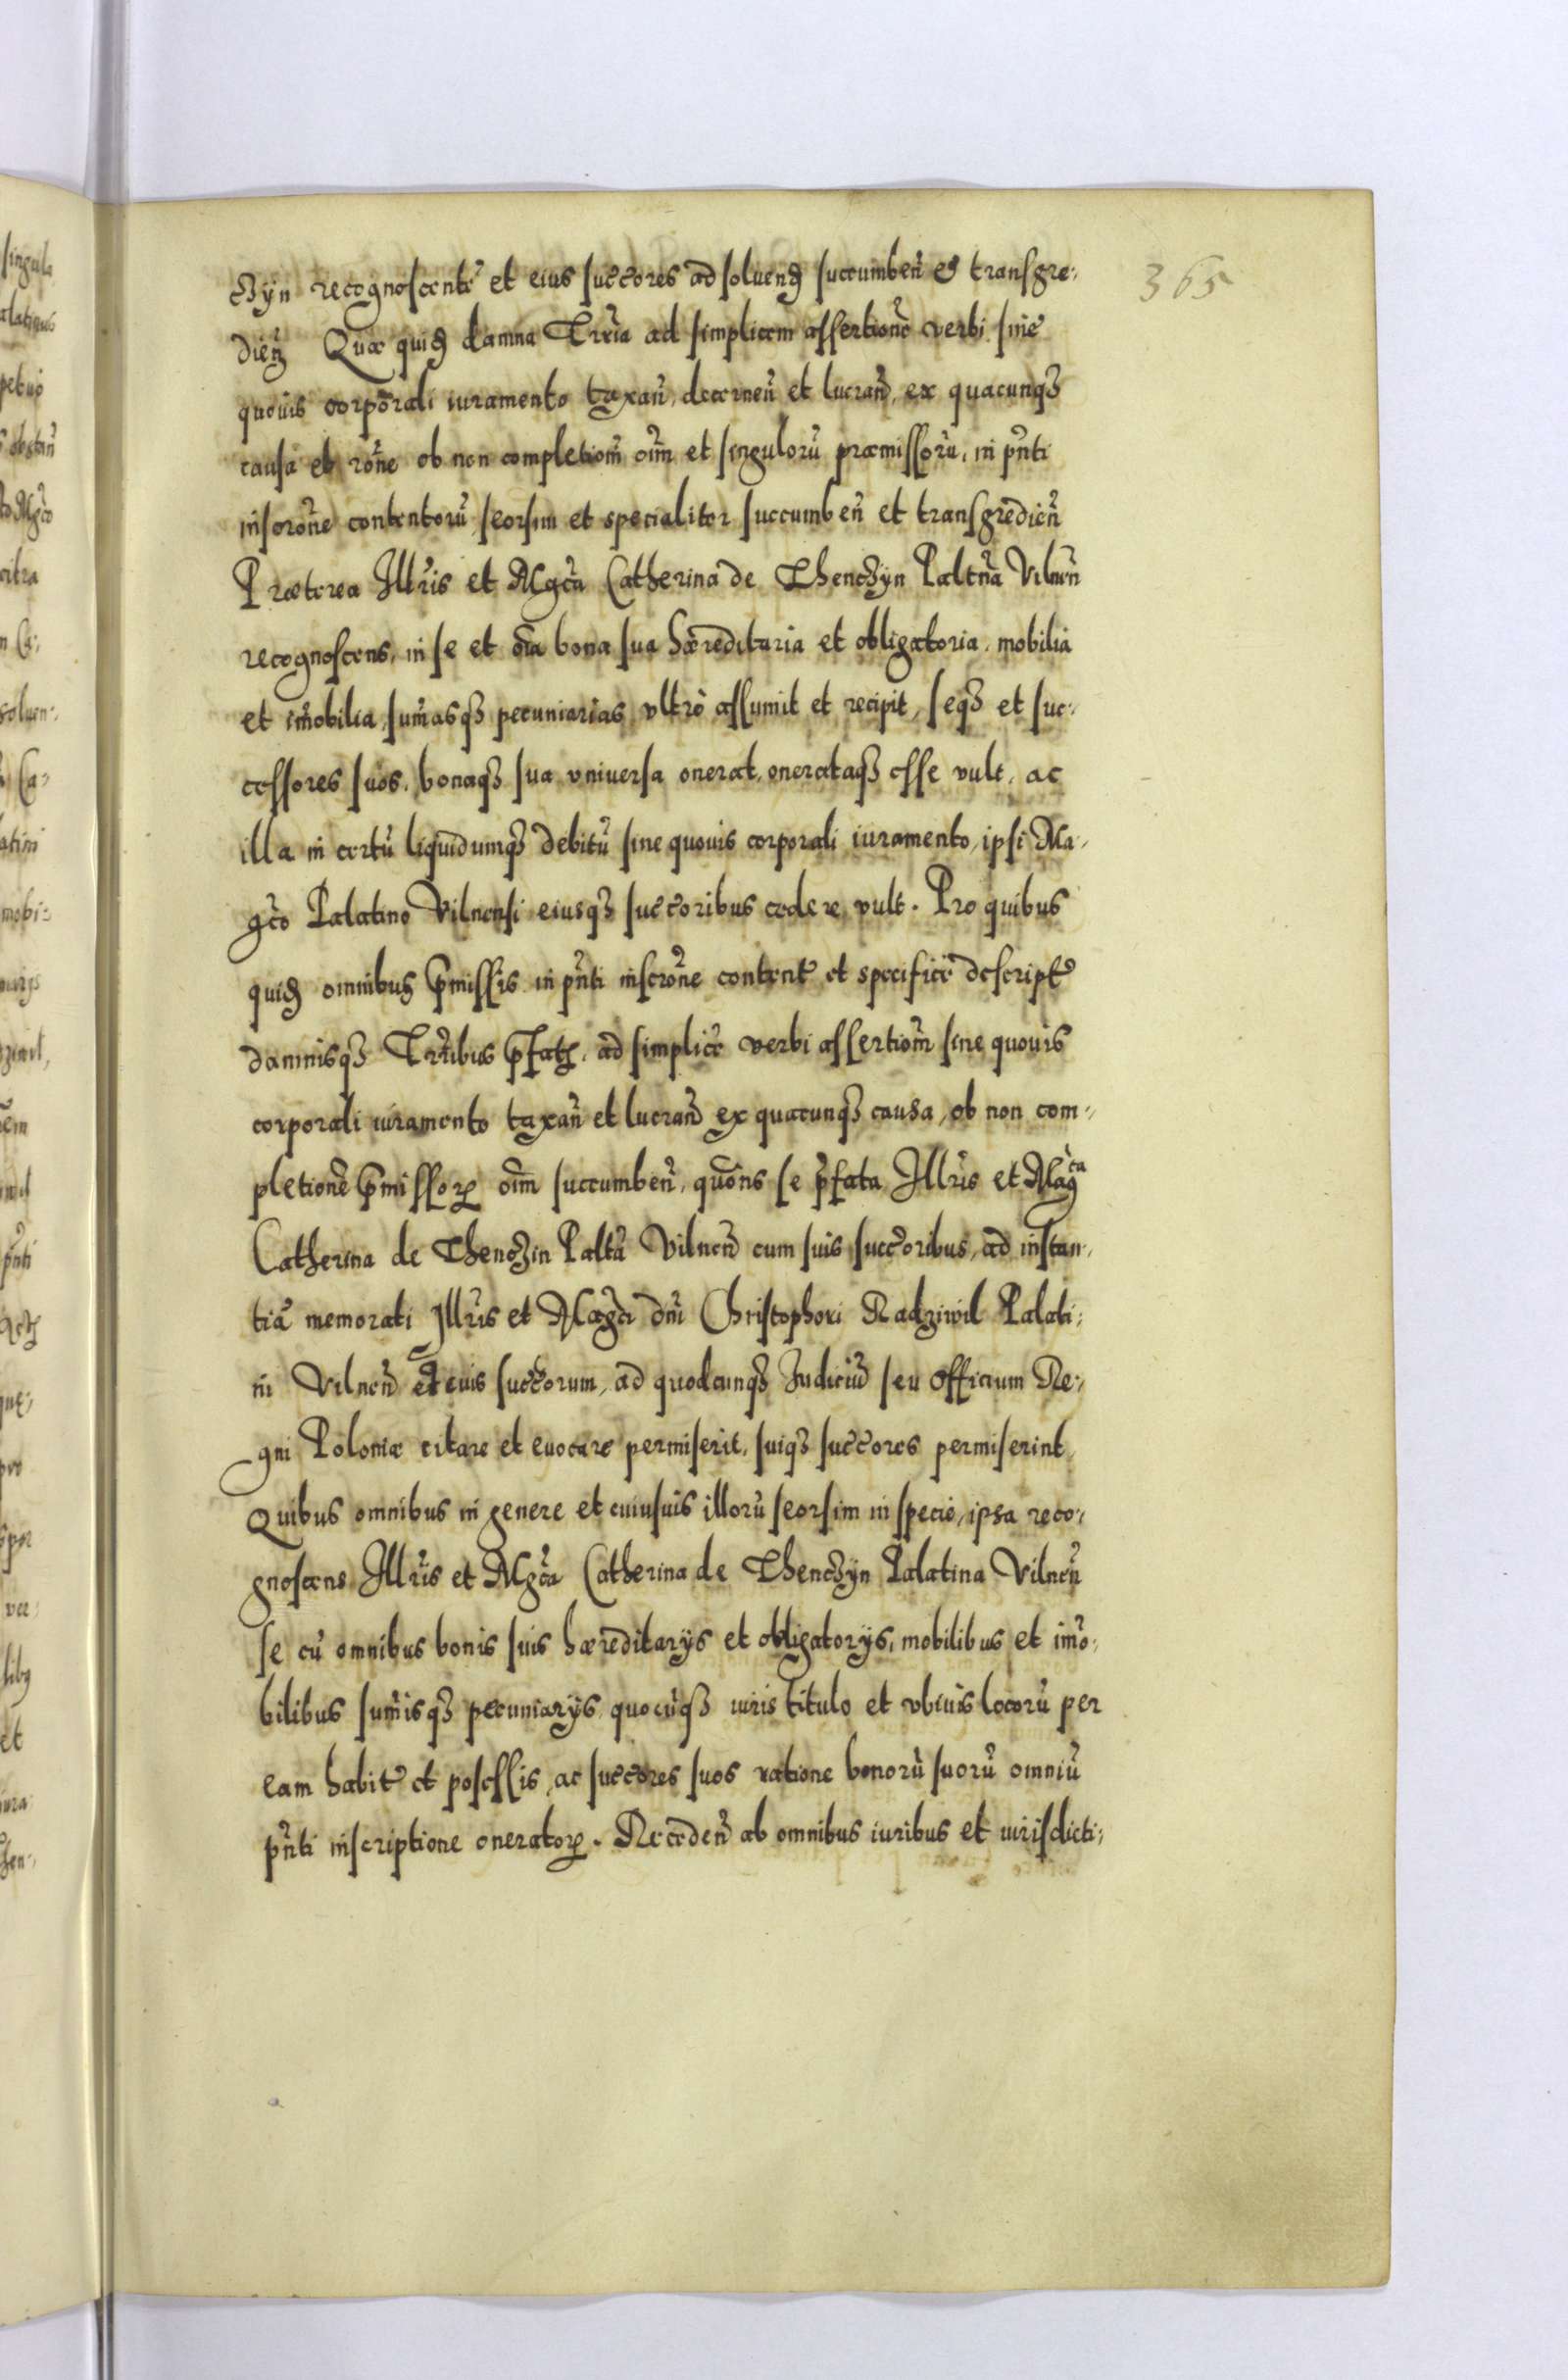 365
czÿn recognoscente et eius succores ad soluend succumben et transgre:
dien Quæ quid damna Trria ad simplicem assertione verbi sine
quouis corporali iuramento taxan, decernen et lucrand, ex quacunqз
causa et rone ob non completiom oim et singuloru præmissoru, in pnti
inscrone contentoru, seorsim et specialiter succumben et transgredien
Præterea Illris et Mgca Catherina de Thenczÿn Paltna Vilnen
recognoscens, in se et oia bona sua hæreditaria et obligatoria, mobilia
et imobilia, sumasqз pecuniarias, vltro assumit et recipit, seqз et suc:
cessores suos, bonaqз sua vniuersa onerat, onerataqз esse vult, ac
illa in certu liquidumqз debitu sine quouis corporali iuramento, ipsi Ma:
gco Palatino Vilnensi eiusqз succoribus cedere vult. Pro quibus
quid omnibus pmissis in pnti inscrone content et specifice descript
damnisqз Trribus pfat, ad simplice verbi assertiom sine quouis
corporali iuramento taxan et lucrand ex quacunqз causa, ob non com:
pletione pmissor oim succumben, quons se pfata Illris et Magca
Catherina de Thenczin Palta Vilnen cum suis succoribus, ad instan:
tia memorati Illris et Magci dni Christophori Radziwil Palati:
ni Vilnen et euis succorum, ad quodcunqз Iudiciu seu Officium Re:
gni Poloniæ citare et euocare permiserit, suiqз succores permiserint,
Quibus omnibus in genere et cuiusuis illoru seorsim in specie, ipsa reco:
gnoscens Illris et Mgca Catherina de Thenczÿn Palatina Vilnen
se cu omnibus bonis suis hæreditarÿs et obligatorÿs, mobilibus et imo:
bilibus sumisqз pecuniarÿs quocuqз iuris titulo et vbiuis locoru per
eam habit et posessis, ac succores suos ratione bonoru suoru omniu
pnti inscriptione onerator. Receden ab omnibus iuribus et iurisdicti: